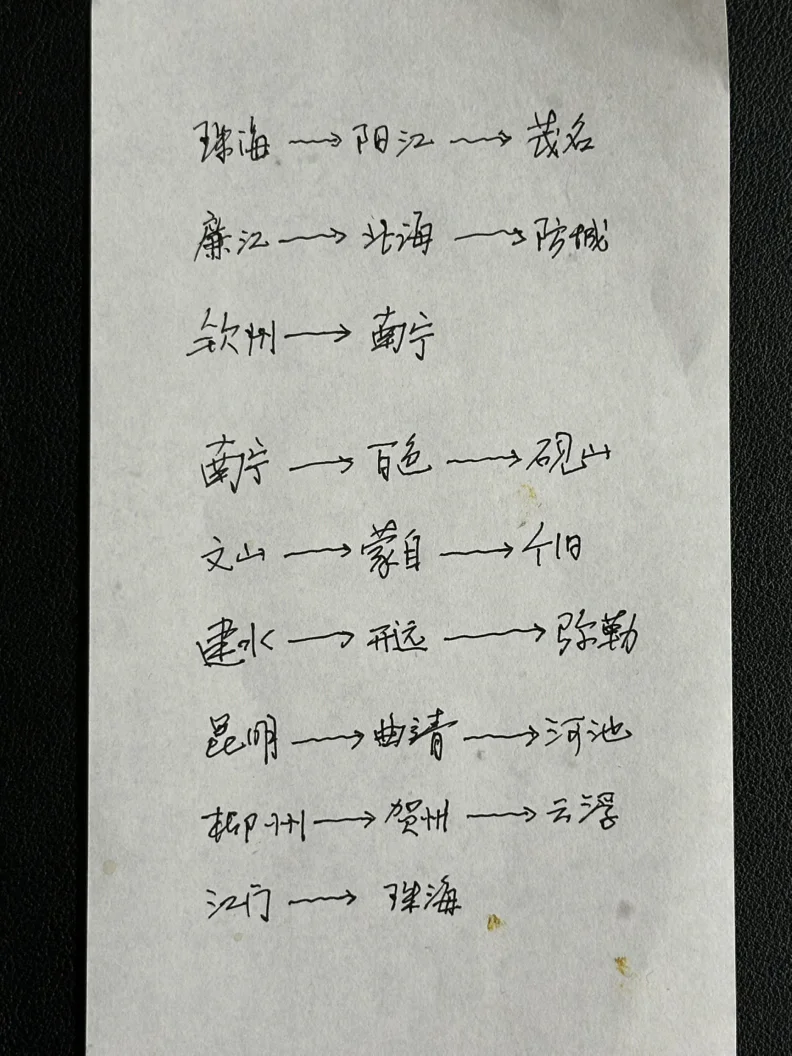 珠海→阳江→茂名
廉江→北海→防城
钦州→南宁
南宁→百色→砚山
文山→蒙自→个旧
建水→开远→弥勒
昆明→曲靖→河池
柳州→贺州→云浮
江门→珠海